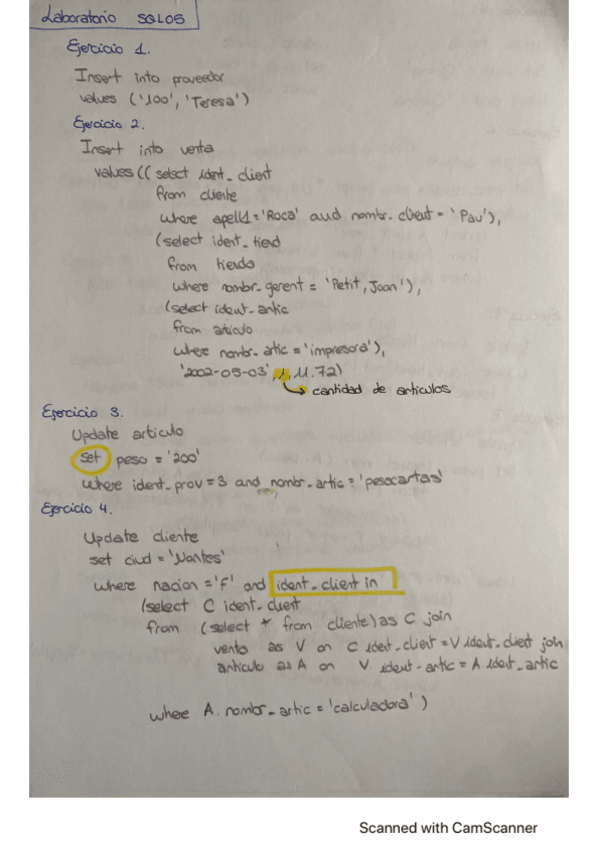 Laboratorio SQL05
Ejercicio 1.
Insert into proveedor
values ('100', 'Teresa')
Ejercicio 2.
Insert into venta
values (( select ident_client
from cliente
where apell1 = 'Roca' and nombr_client = 'Pau'),
(select ident_tiend
from tienda
where nombr_gerent = 'Petit, Joan'),
(select ident_artic
from articulo
where nombr_artic = 'impresora'),
'2002-05-03', 1, 11.72)
cantidad de articulos
Ejercicio 3.
Update articulo
set peso = '200'
where ident_prov = 3 and nombr_artic = 'pesacartas'
Ejercicio 4.
Update cliente
set ciud = 'Nantes'
where nacion = 'F' and ident_client in
(select C ident_client
from (select * from cliente) as C join
venta as V on C ident_client = V ident_client join
articulo as A on V ident_artic = A ident_artic
where A. nombr_artic = 'calculadora' )
Scanned with CamScanner